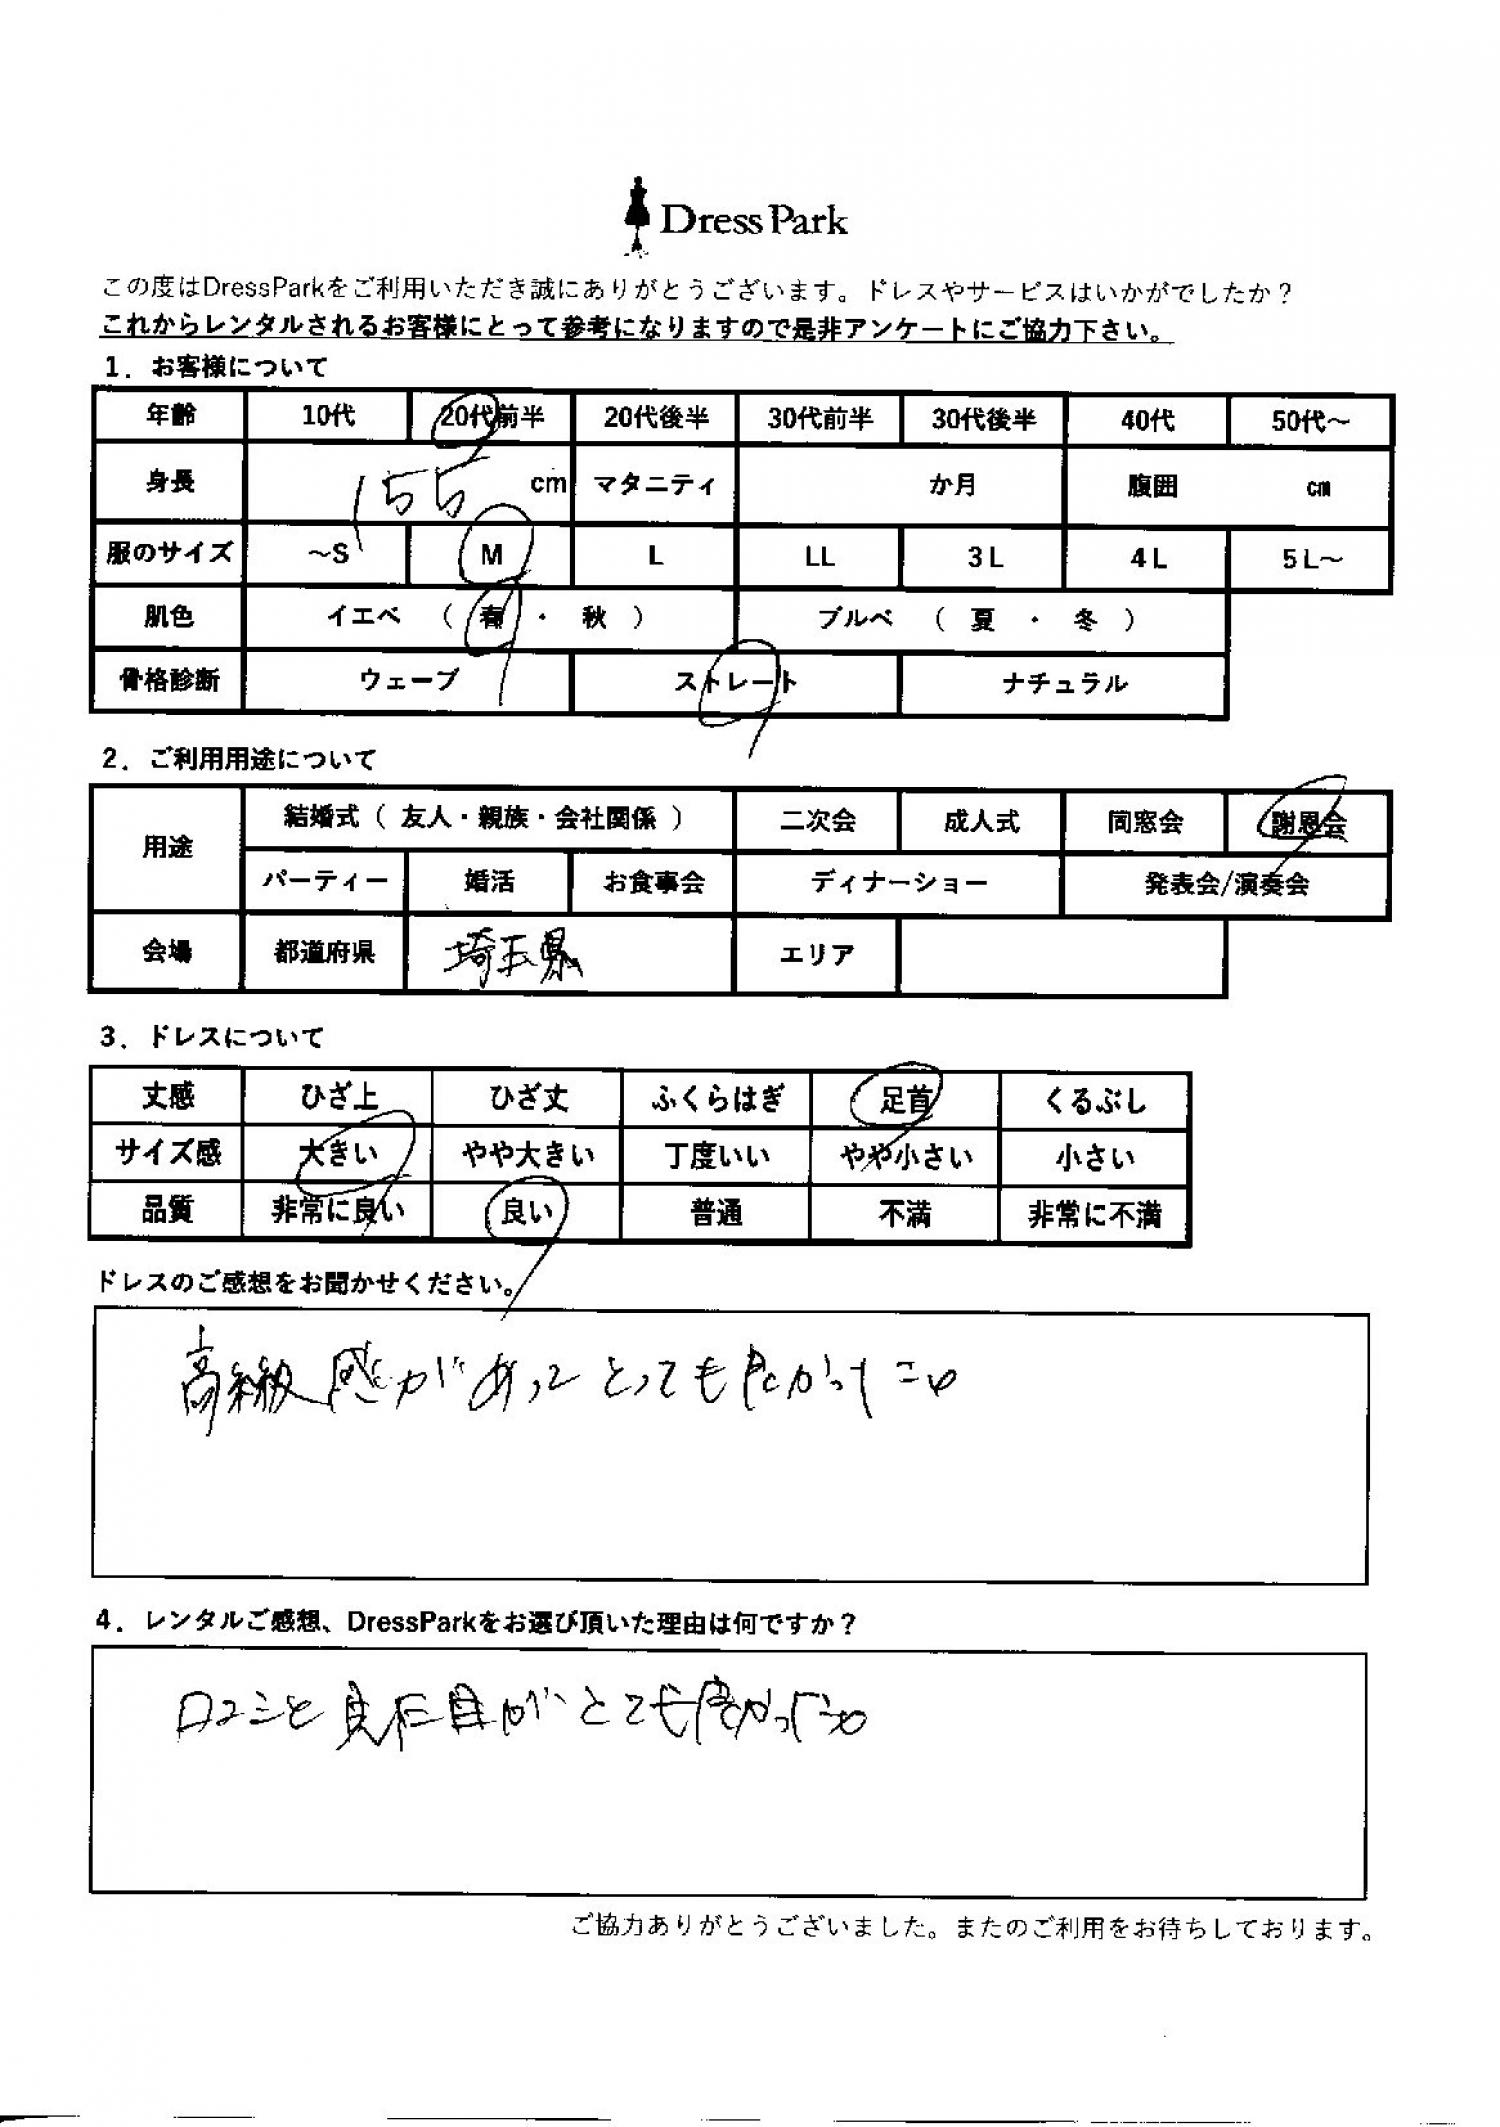 Dress Park
この度はDressParkをご利用いただき誠にありがとうございます。ドレスやサービスはいかがでしたか？
これからレンタルされるお客様にとって参考になりますので是非アンケートにご協力下さい。
1．お客様について
年齢 10代 20代前半 20代後半 30代前半 30代後半 40代 50代～
身長 155 cm マタニティ か月 腹囲 cm
服のサイズ ～S M L LL 3L 4L 5L～
肌色 イエベ （ 春 ・ 秋 ） ブルベ （ 夏 ・ 冬 ）
骨格診断 ウェーブ ストレート ナチュラル
2．ご利用用途について
用途 結婚式（ 友人・親族・会社関係 ） 二次会 成人式 同窓会 謝恩会
パーティー 婚活 お食事会 ディナーショー 発表会/演奏会
会場 都道府県 埼玉県 エリア
3．ドレスについて
丈感 ひざ上 ひざ丈 ふくらはぎ 足首 くるぶし
サイズ感 大きい やや大きい 丁度いい やや小さい 小さい
品質 非常に良い 良い 普通 不満 非常に不満
ドレスのご感想をお聞かせください。
高級感があってとっても良かった。
4．レンタルご感想、DressParkをお選び頂いた理由は何ですか？
口コミと見た目がとても良かった。
ご協力ありがとうございました。またのご利用をお待ちしております。